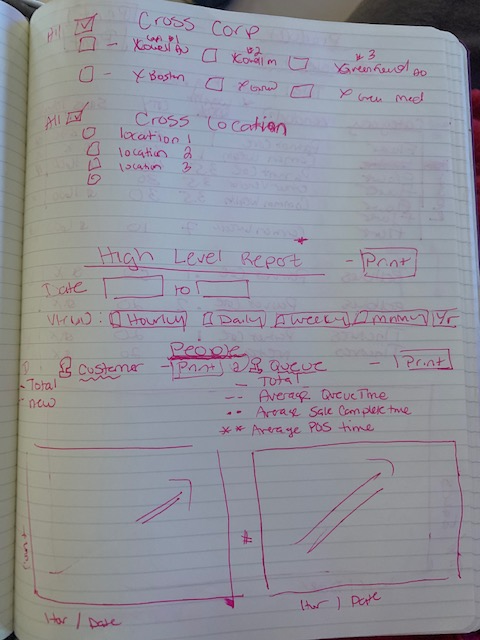 All Cross Corp
#2 * 3
- X Boston
All Cross Location
location 1
location 2
location 3
*
High Level Report - Print
Date to
View: Hourly Daily Weekly Yr
People
Customer - Print 2 Queue - Print
- Total - Total
- new -- Average Queue Time
•• Average Sale Complete time
** Average POS time
#
Hor / Date Hor / Date